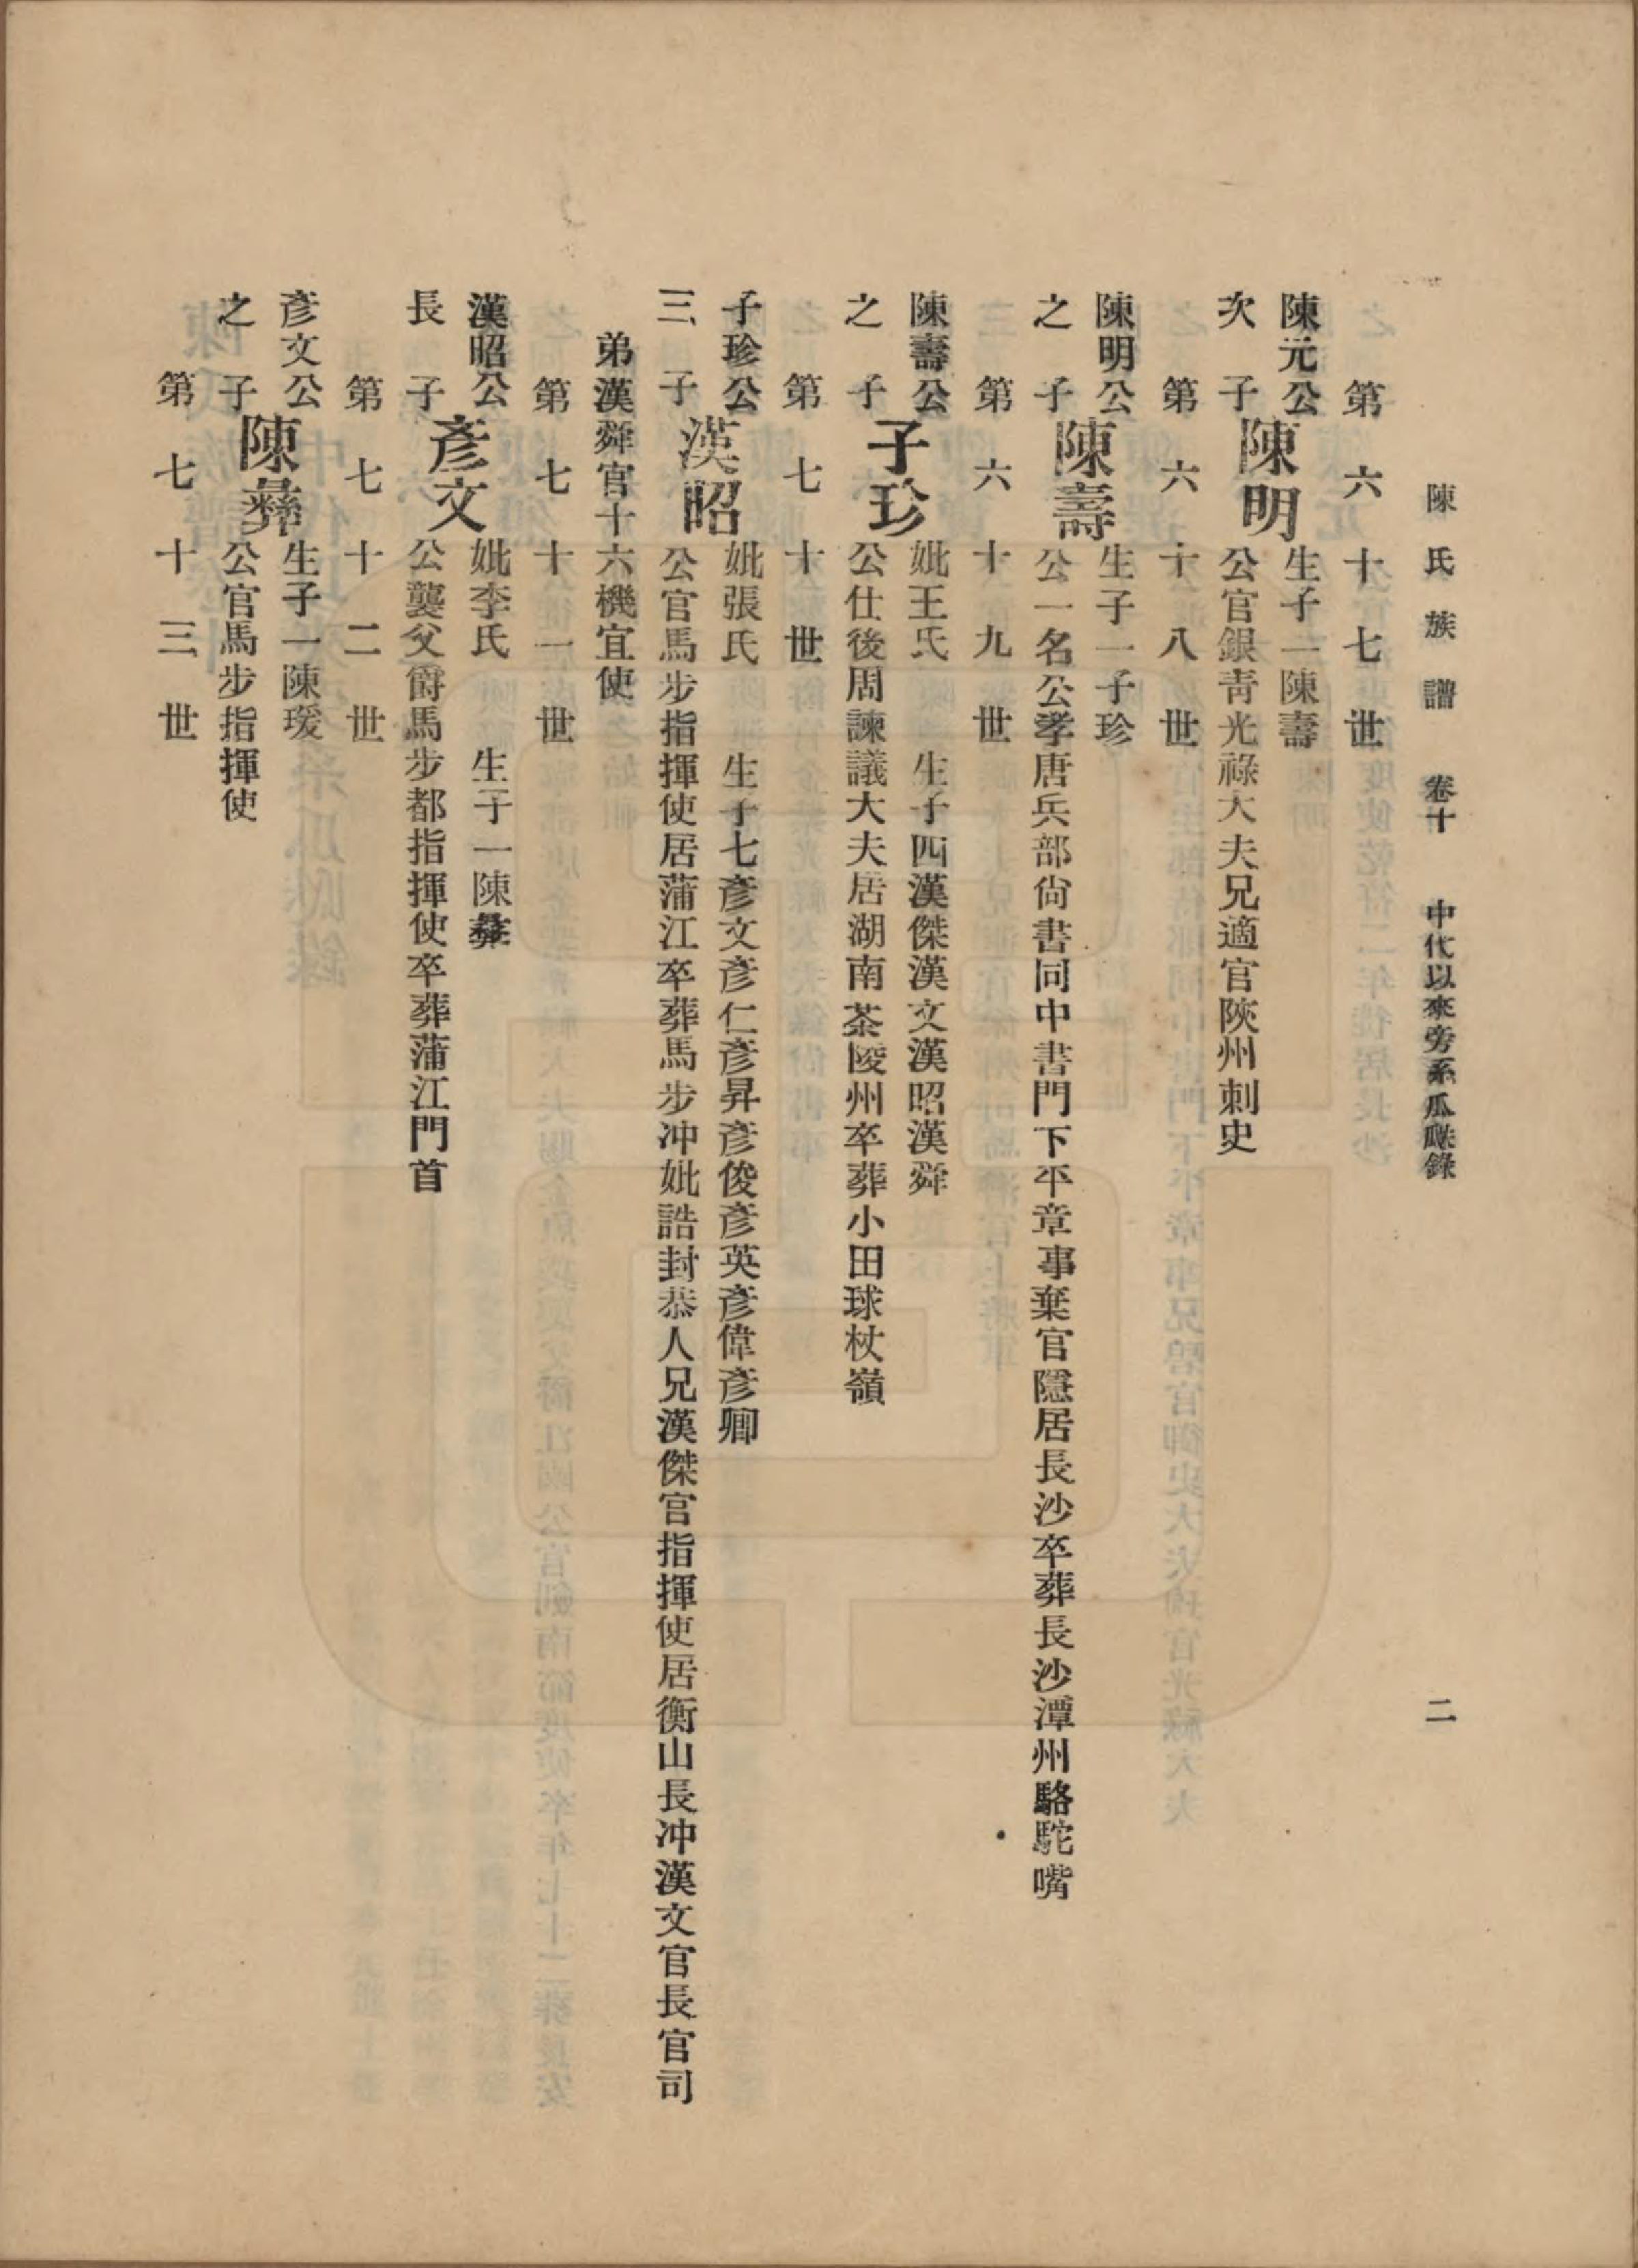 陳氏族譜 卷十 中代以來旁系瓜瓞錄 二
第六十七世
陳元公次子 陳明 生子一陳壽
公官銀青光祿大夫兄適官陝州刺史
第六十八世
陳明公之子 陳壽 生子一子珍
公一名公孝唐兵部尙書同中書門下平章事棄官隱居長沙卒葬長沙潭州駱駝嘴
第六十九世
陳壽公之子 子珍 妣王氏 生子四漢傑漢文漢昭漢舜
公仕後周諫議大夫居湖南茶陵州卒葬小田球杖嶺
第七十世
子珍公三子 漢昭 妣張氏 生子七彥文彥仁彥昇彥俊彥英彥偉彥卿
公官馬步指揮使居蒲江卒葬馬步冲妣誥封恭人兄漢傑官指揮使居衡山長冲漢文官長官司
弟漢舜官十六機宜使
第七十一世
漢昭公長子 彥文 妣李氏 生子一陳彝
公襲父爵馬步都指揮使卒葬蒲江門首
第七十二世
彥文公之子 陳彝 生子一陳瑗
公官馬步指揮使
第七十三世